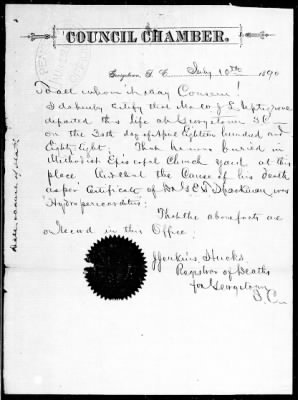 COUNCIL CHAMBER.
Georgetown, S. C. July 10th 1890
To all whom it may Concern!
I do hereby Certify that
departed this life at Georgetown S C
on the day of April Eighteen hundred and
Eighty Eight; That he was buried in
Methodist Episcopal Church yard at this
place And that the Cause of his death
as per Certificate of Dr was
Hydropericarditis:
That the above facts are
on Record in this Office;
Jenkins Hucks
Registrar of Deaths
for Georgetown
S C